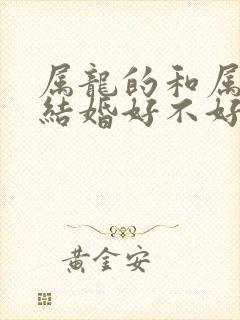 属龍的和属
結婚好不好
黃金安